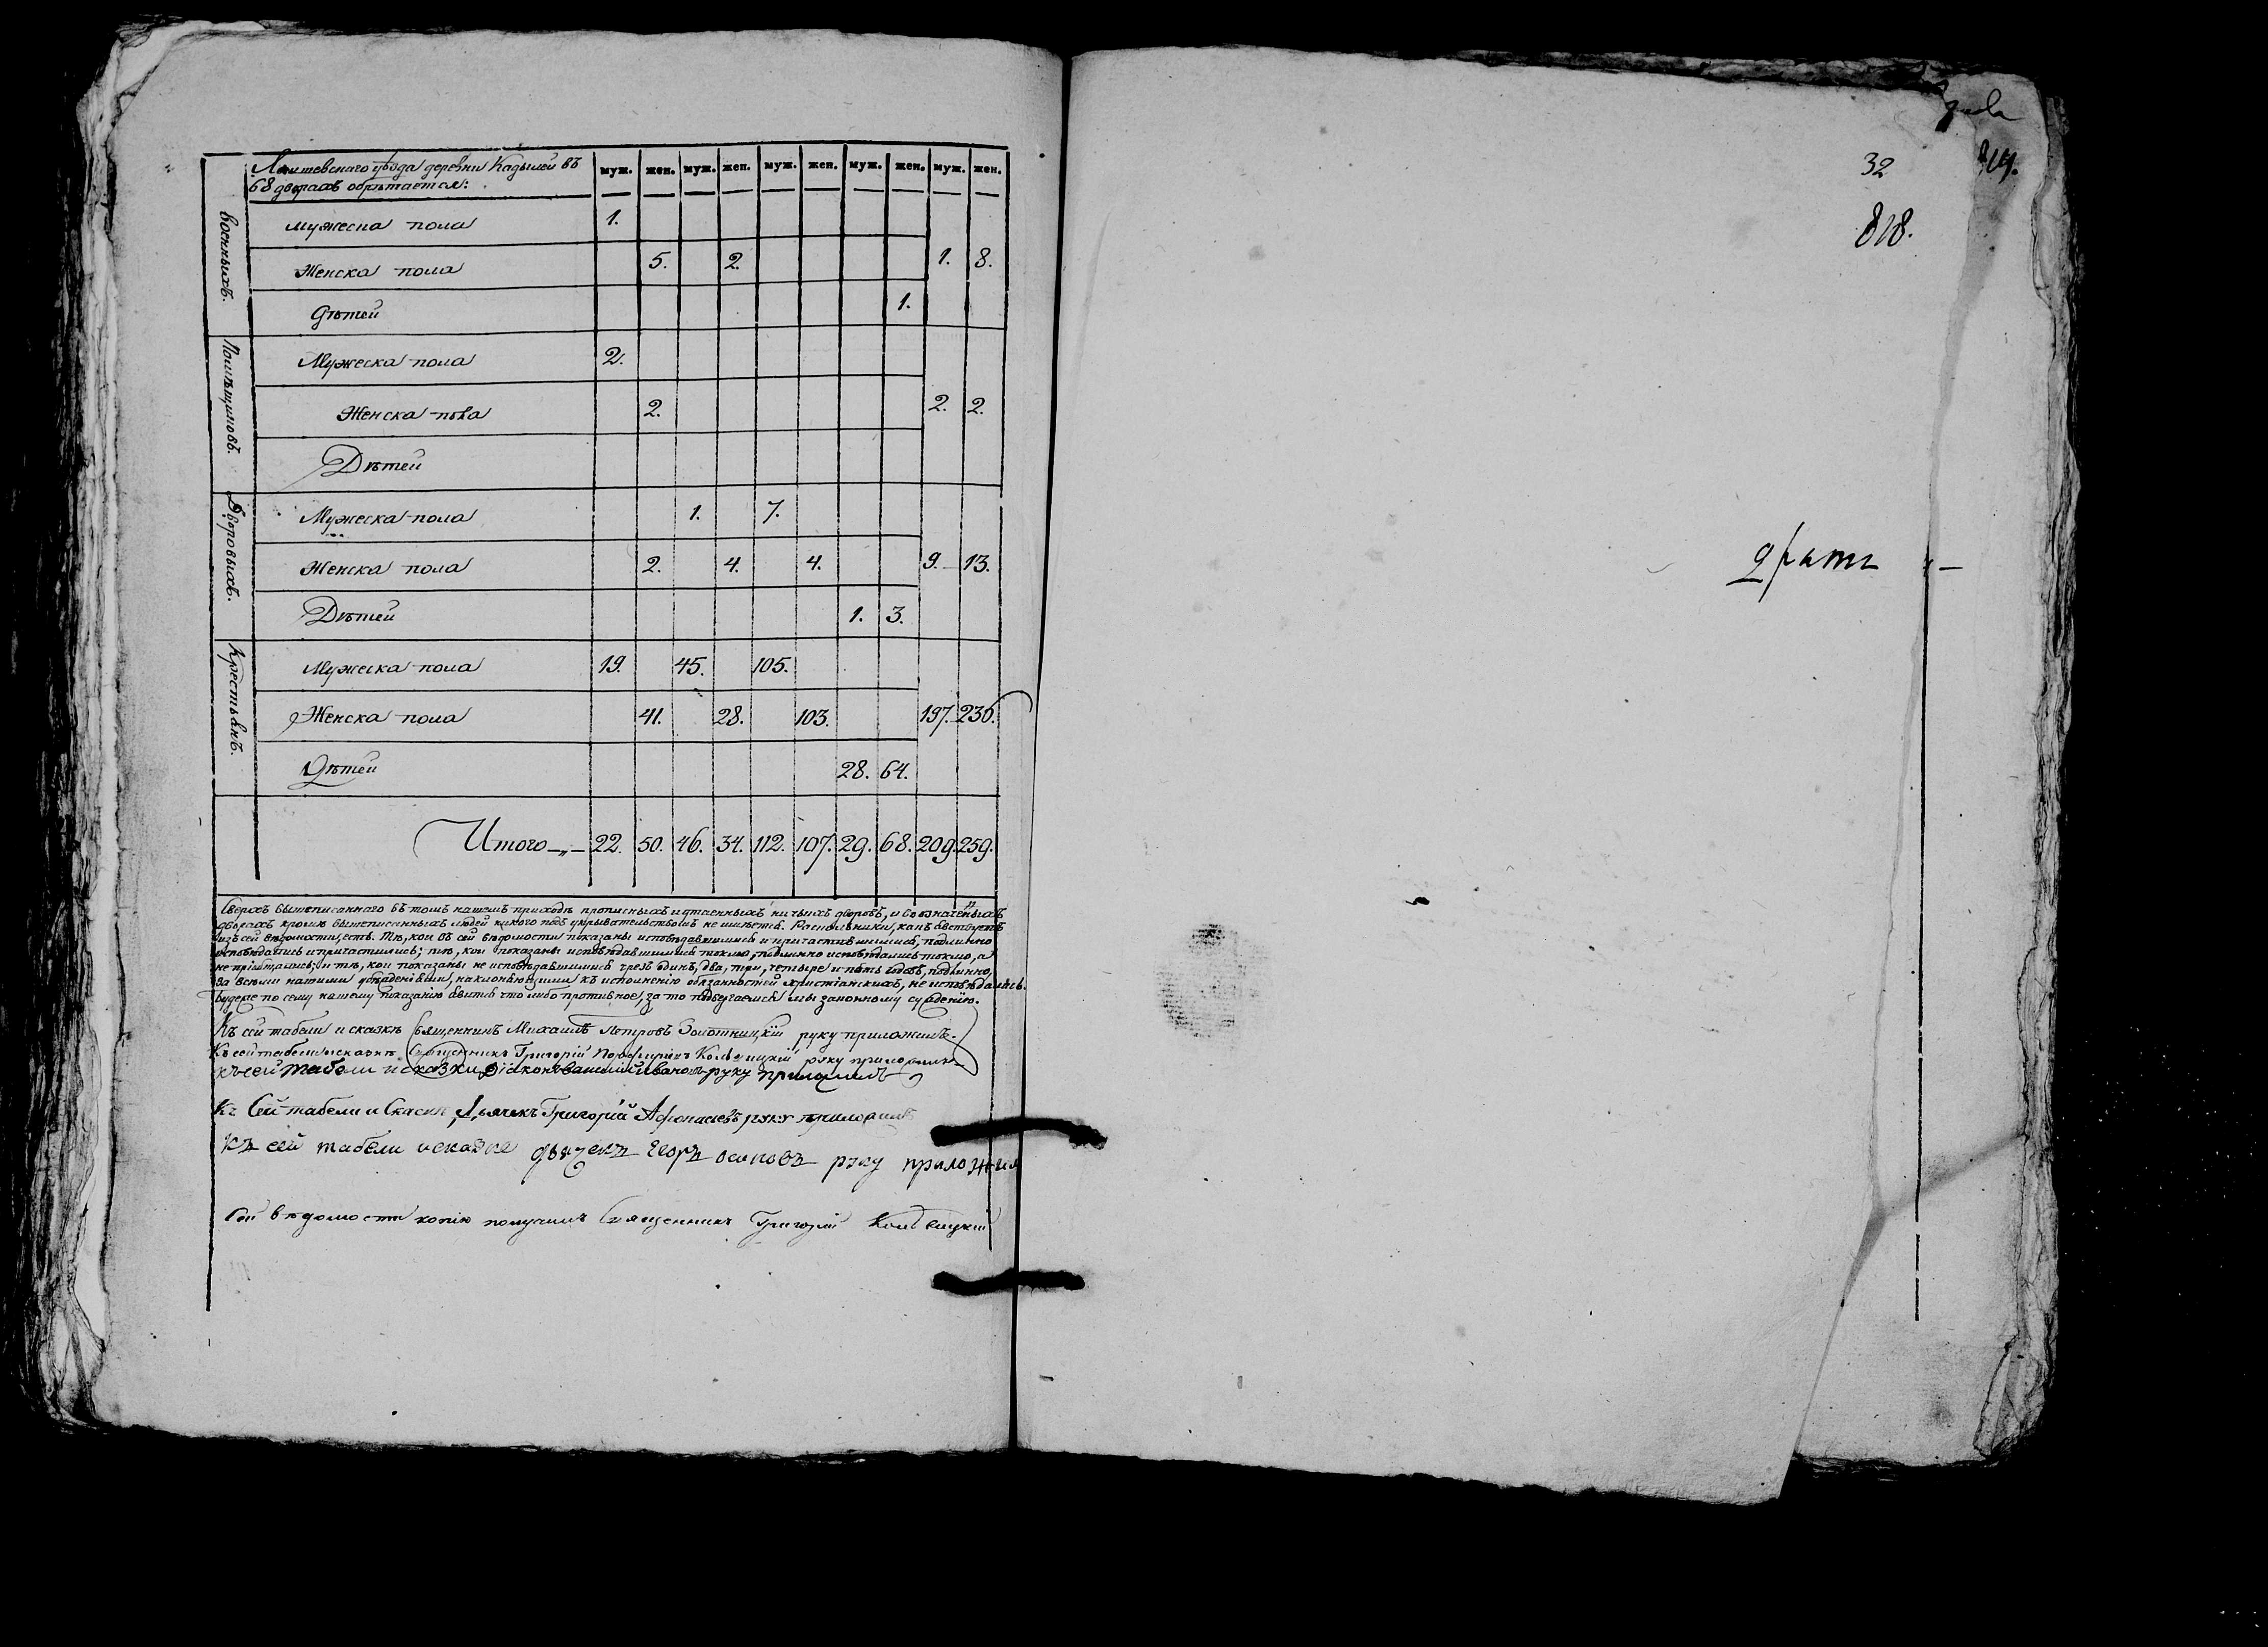 Лаишевскаго уѣзда деревни Кадылей въ муж. жен. муж. жен. муж. жен. муж. жен. муж. жен.
68 дворахъ обрѣтается:
Военныхъ.
мужеска пола 1.
Женска пола 5. 2. 1. 8.
Дѣтей 1.
Помѣщиковъ.
Мужеска пола 2.
Женска пола 2. 2. 2.
Дѣтей
Дворовыхъ.
Мужеска пола 1. 7.
Женска пола 2. 4. 4. 9. 13.
Дѣтей 1. 3.
Крестьянъ.
Мужеска пола 19. 45. 105.
Женска пола 41. 28. 103. 197. 236.
Дѣтей 28. 64.
Итого 22. 50. 46. 34. 112. 107. 29. 68. 209. 259.
Сверхъ вышеписаннаго въ томъ нашемъ приходѣ прописныхъ и утаенныхъ ничьихъ дворовъ, и въ означенныхъ
дворахъ кромѣ вышеписанныхъ людей никого подъ укрывательствомъ не имѣется. Раскольники, какъ явствуетъ
изъ сей вѣдомости, есть. Тѣ, кои въ сей вѣдомости показаны исповѣдавшимися и причастившимися, подлинно
исповѣдались и причастились; тѣ, кои показаны исповѣдавшимися токмо, подлинно исповѣдались токмо, а
не пріобщались; и тѣ, кои показаны не исповѣдавшимися чрезъ одинъ, два, три, четыре и пять годовъ, подлинно,
за всѣми нашими убѣжденіями, наклоняющими къ исполненію обязанностей христіанскихъ, не исповѣдались.
Будеже по сему нашему показанію явится что либо противное, за то подвергаемся мы законному сужденію.
Къ сей табели и сказкѣ священникъ Михаилъ Петровъ Золотницкій руку приложилъ.
Къ сей табели и сказкѣ Священникъ Григорій Порфирьевъ руку приложилъ
къ сей табели и сказки Діаконъ Василій Ивановъ руку приложилъ
Къ Сей табели и Сказки Дьячекъ Григорій Афонасьевъ руку приложилъ
къ сей табели и сказке дьячекъ Егоръ осиповъ руку приложил
Сей вѣдомости копію получилъ Священникъ Григорій
32
818.